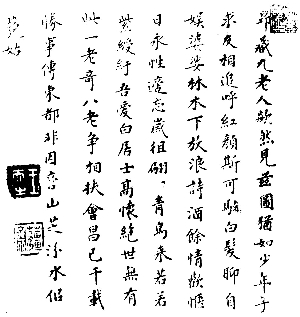 九老人欣然見茲圖猶如少年子
求友相追呼紅顏斯可駐白髮聊自
娛婆娑林木下放浪詩酒餘情歡惟
日永性逸忘歲徂翩翩青鳥來若若
紫綬紆吾愛白居士高懷絕世無有
此一老哥八老爭相扶會昌已千載
勝事傳東都非因香山英水侶
藐姑